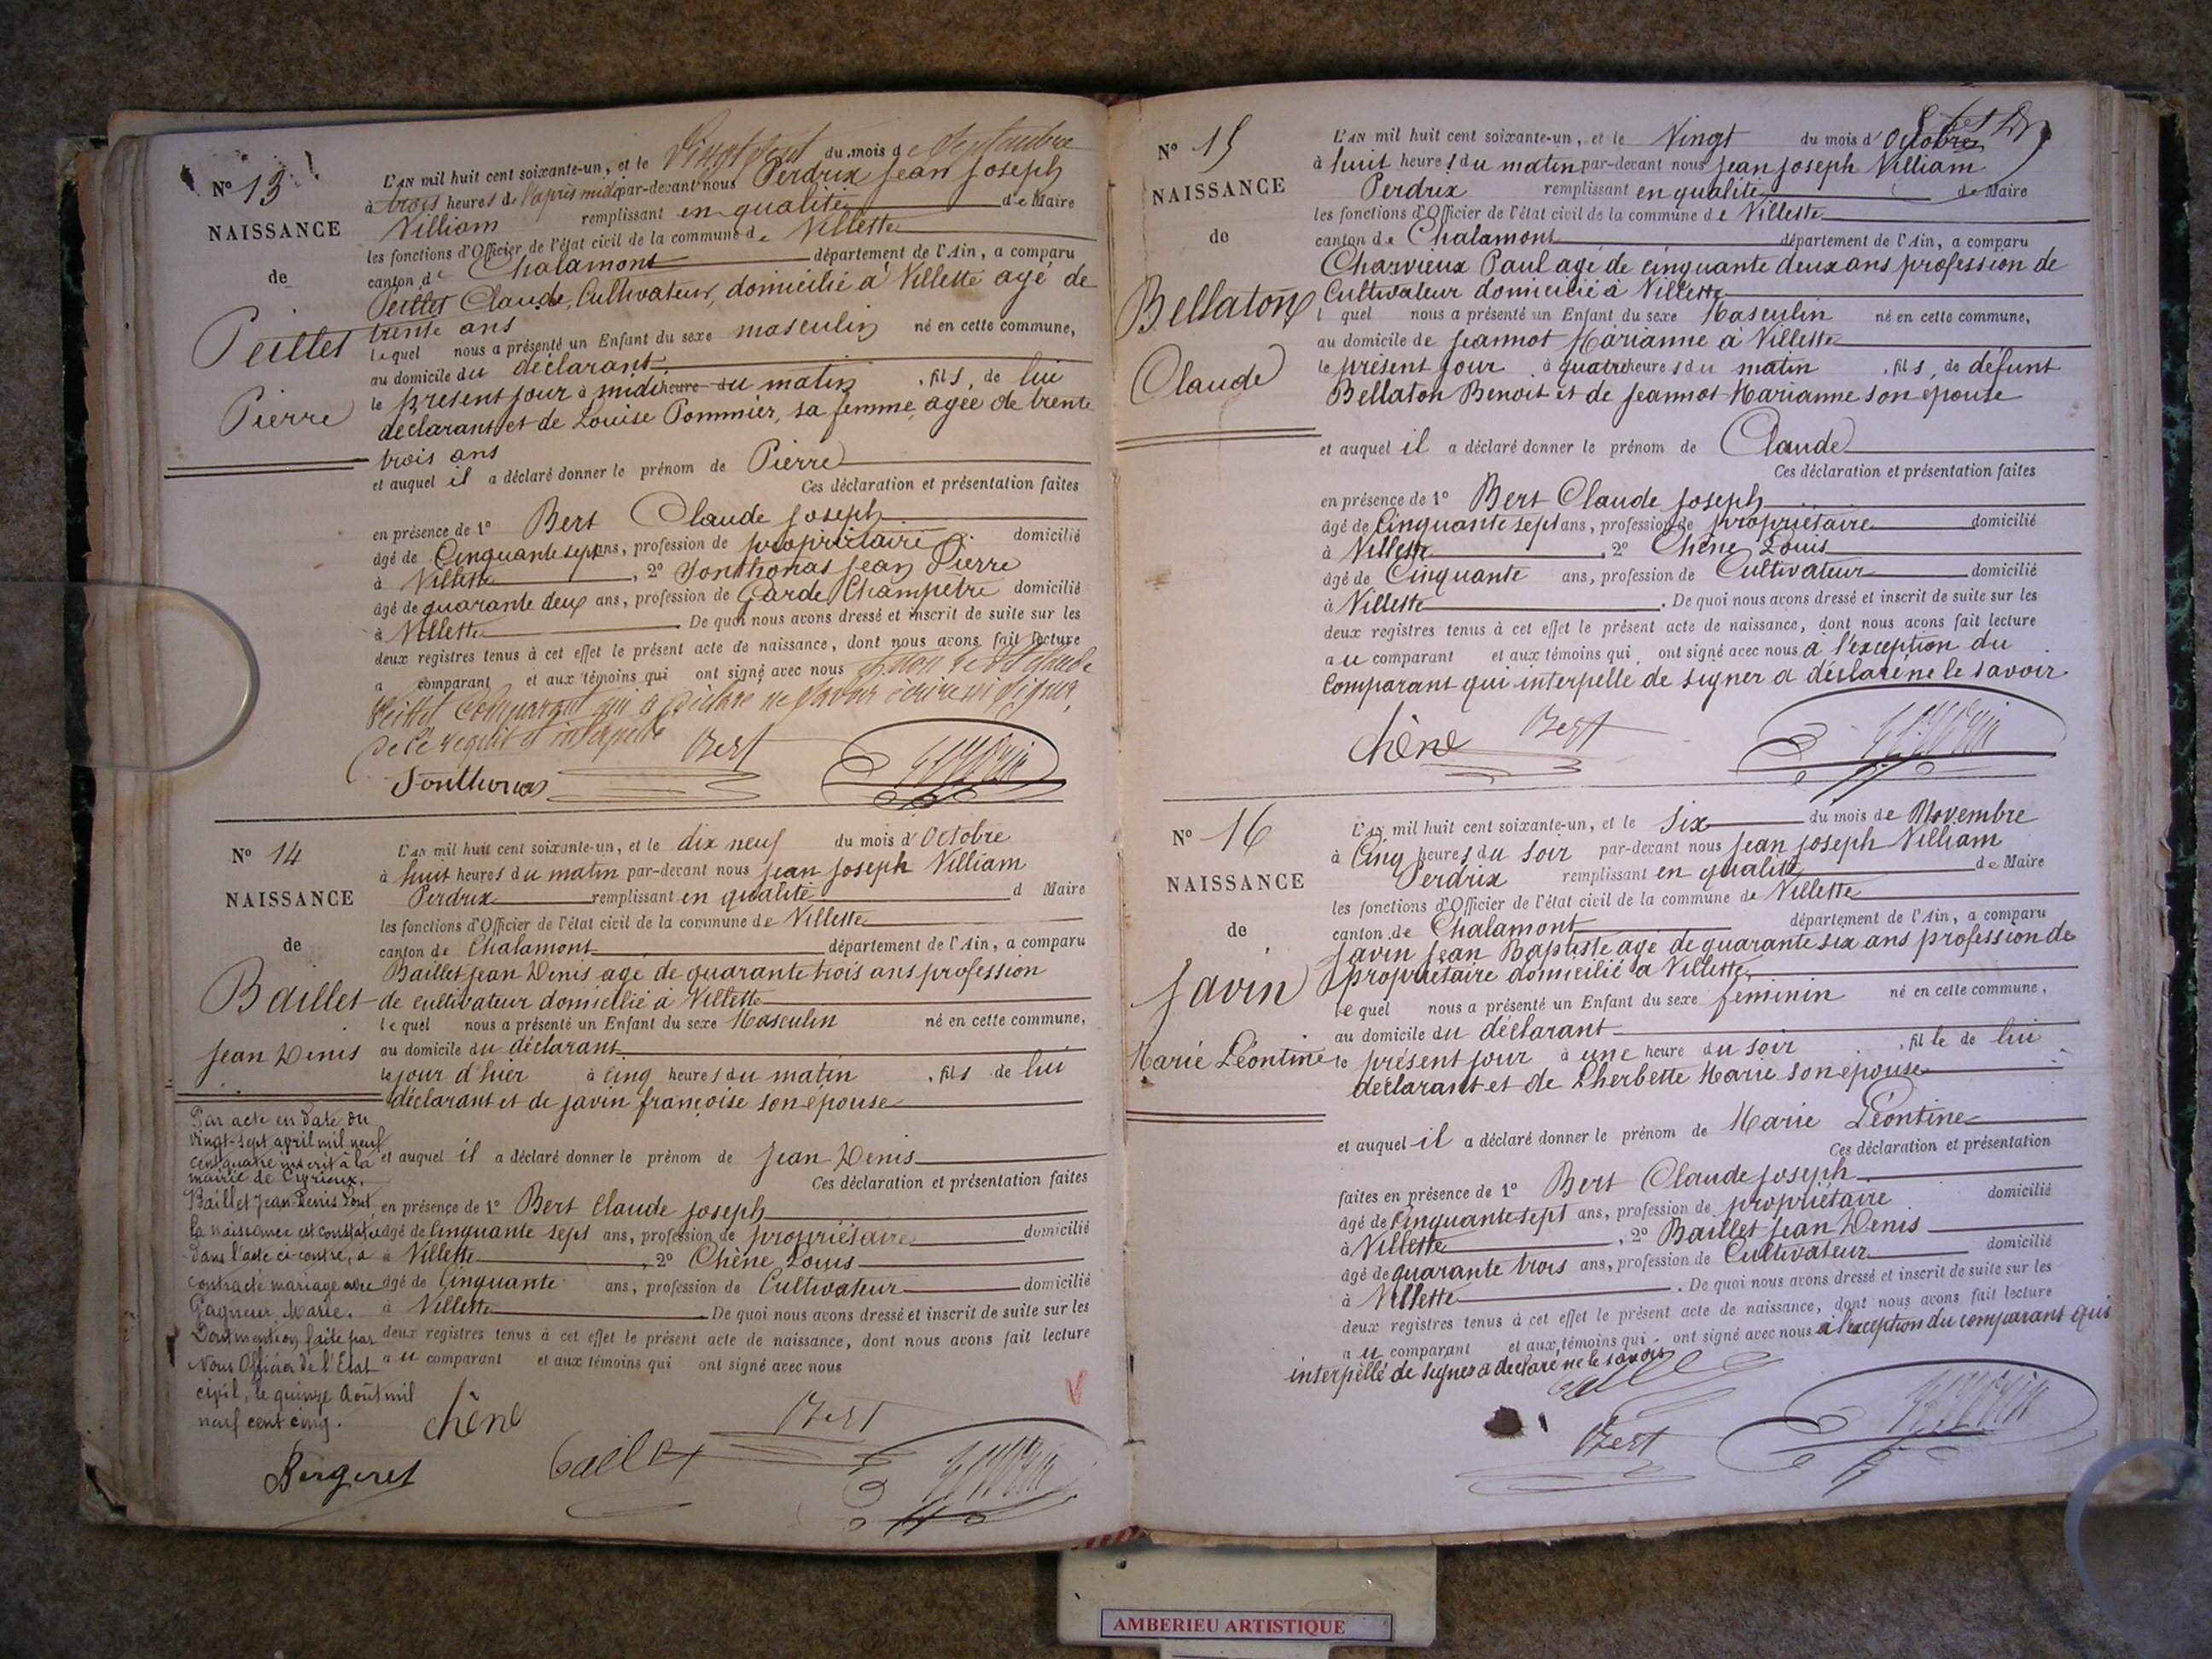 N° 13
NAISSANCE
de
Peillet
Pierre
L'AN mil huit cent soixante-un, et le Vingt sept du mois de Septembre
à trois heures de l'après midi par-devant nous Perdrix Jean Joseph
Villiam remplissant en qualité de Maire
les fonctions d'Officier de l'état civil de la commune de Villette
canton de Chalamont département de l'Ain, a comparu
Peillet Claude, Cultivateur, domicilié à Villette agé de
trente ans
lequel nous a présenté un Enfant du sexe masculin né en cette commune,
au domicile du déclarant
le présent jour à midi heure du matin , fils, de lui
déclarant et de Louise Pommier, sa femme agée de trente
trois ans
et auquel il a déclaré donner le prénom de Pierre
Ces déclaration et présentation faites
en présence de 1° Bert Claude Joseph
âgé de Cinquante sept ans, profession de propriétaire domicilié
à Villette , 2° Fonthonas Jean Pierre
âgé de quarante deux ans, profession de Garde Champetre domicilié
à Villette . De quoi nous avons dressé et inscrit de suite sur les
deux registres tenus à cet effet le présent acte de naissance, dont nous avons fait lecture
a comparant et aux témoins qui ont signé avec nous Claude
Peillet Comparant qui a déclaré ne savoir écrire ni signer,
de ce requis et interpellé
Bert
Fonthonas
N° 14
NAISSANCE
de
Baillet
Jean Denis
L'AN mil huit cent soixante-un, et le dix neuf du mois d'Octobre
à huit heures du matin par-devant nous Jean Joseph Villiam
Perdrix remplissant en qualité d Maire
les fonctions d'Officier de l'état civil de la commune de Villette
canton de Chalamont département de l'Ain, a comparu
Baillet Jean Denis agé de quarante trois ans profession
de cultivateur domicilié à Villette
lequel nous a présenté un Enfant du sexe Masculin né en cette commune,
au domicile du déclarant
le jour d'hier à cinq heures du matin , fils de lui
déclarant et de Javin françoise son épouse
et auquel il a déclaré donner le prénom de Jean Denis
Ces déclaration et présentation faites
en présence de 1° Bert Claude Joseph
âgé de Cinquante sept ans, profession de propriétaire domicilié
à Villette , 2° Chêne Louis
âgé de Cinquante ans, profession de Cultivateur domicilié
à Villette . De quoi nous avons dressé et inscrit de suite sur les
deux registres tenus à cet effet le présent acte de naissance, dont nous avons fait lecture
au comparant et aux témoins qui ont signé avec nous
Par acte en date du
vingt-sept avril mil neuf
cent quatre inscrit à la
mairie de Cyrieux,
Baillet Jean Denis dont
la naissance est constatée
dans l'acte ci-contre, a
contracté mariage avec
Gagneur Marie.
Dont mention faite par
Nous Officier de l'Etat
civil, le quinze Août mil
neuf cent cinq.
Chêne
Bert
Baillet
Bergeret
N° 15
NAISSANCE
de
Bellaton
Claude
L'AN mil huit cent soixante-un, et le Vingt du mois d'Octobre
à huit heures du matin par-devant nous Jean Joseph Villiam
Perdrix remplissant en qualité de Maire
les fonctions d'Officier de l'état civil de la commune de Villette
canton de Chalamont département de l'Ain, a comparu
Charvieux Paul agé de cinquante deux ans profession de
Cultivateur domicilié à Villette
l quel nous a présenté un Enfant du sexe Masculin né en cette commune,
au domicile de Jeannot Marianne à Villette
le présent jour à quatre heures du matin , fils, de défunt
Bellaton Benoit et de Jeannot Marianne son épouse
et auquel il a déclaré donner le prénom de Claude
Ces déclaration et présentation faites
en présence de 1° Bert Claude Joseph
âgé de Cinquante sept ans, profession de propriétaire domicilié
à Villette , 2° Chêne Louis
âgé de Cinquante ans, profession de Cultivateur domicilié
à Villette . De quoi nous avons dressé et inscrit de suite sur les
deux registres tenus à cet effet le présent acte de naissance, dont nous avons fait lecture
au comparant et aux témoins qui ont signé avec nous à l'exception du
Comparant qui interpellé de signer a déclaré ne le savoir
Chêne
Bert
N° 16
NAISSANCE
de
Javin
Marie Léontine
L'AN mil huit cent soixante-un, et le Six du mois de Novembre
à Cinq heures du soir par-devant nous Jean Joseph Villiam
Perdrix remplissant en qualité de Maire
les fonctions d'Officier de l'état civil de la commune de Villette
canton de Chalamont département de l'Ain, a comparu
Javin Jean Baptiste agé de quarante six ans profession de
propriétaire domicilié à Villette
lequel nous a présenté un Enfant du sexe féminin né en cette commune,
au domicile du déclarant
le présent jour à une heure du soir , fille de lui
déclarant et de Lherbette Marie son épouse
et auquel il a déclaré donner le prénom de Marie Léontine
Ces déclaration et présentation
faites en présence de 1° Bert Claude Joseph
âgé de Cinquante sept ans, profession de propriétaire domicilié
à Villette , 2° Baillet Jean Denis
âgé de quarante trois ans, profession de Cultivateur domicilié
à Villette . De quoi nous avons dressé et inscrit de suite sur les
deux registres tenus à cet effet le présent acte de naissance, dont nous avons fait lecture
au comparant et aux témoins qui ont signé avec nous à l'exception du comparant qui
interpellé de signer a déclaré ne le savoir
Bert
AMBERIEU ARTISTIQUE